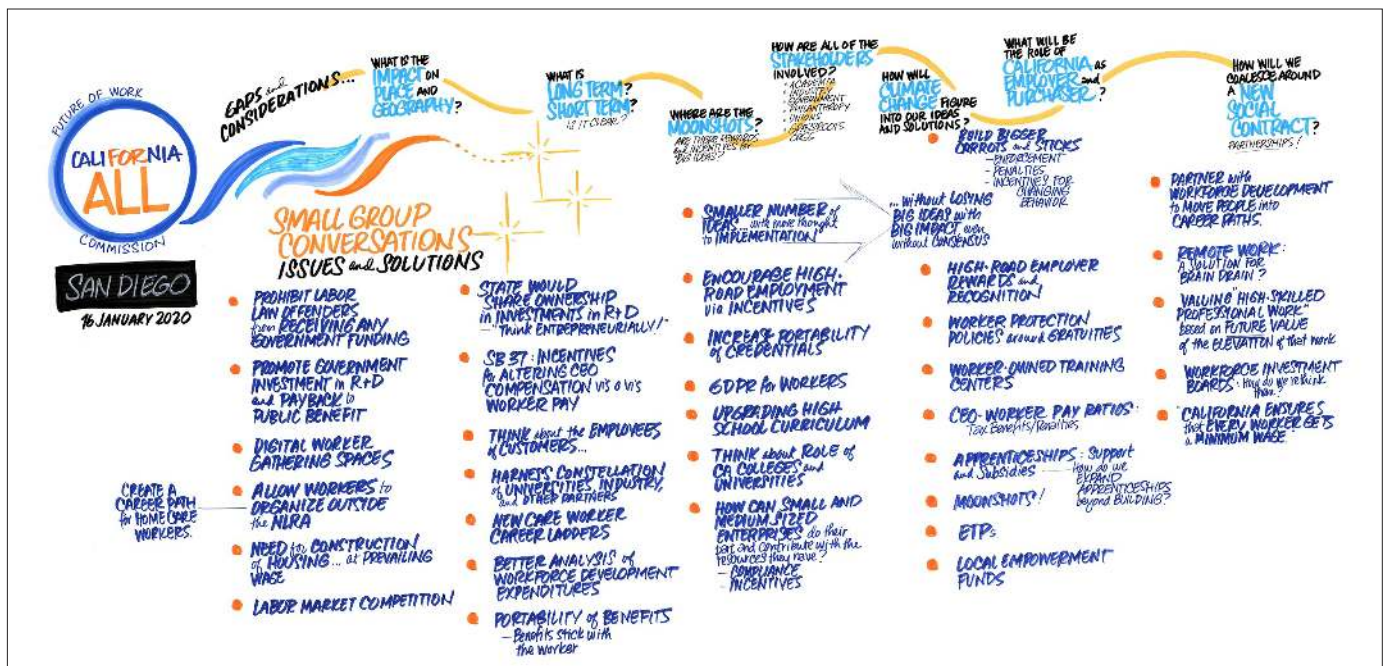 FUTURE OF WORK
CALIFORNIA
ALL
COMMISSION
SAN DIEGO
16 JANUARY 2020
GAPS and
CONSIDERATIONS...
WHAT IS THE
IMPACT ON
PLACE AND
GEOGRAPHY?
WHAT IS
LONG TERM?
SHORT TERM?
IS IT CLEAR?
WHERE ARE THE
MOONSHOTS?
ARE THERE REWARDS
and INCENTIVES for
BIG IDEAS?
HOW ARE ALL OF THE
STAKEHOLDERS
INVOLVED?
• ACADEMIA
• INDUSTRY
• GOVERNMENT
• PHILANTHROPY
• UNIONS
• GRASSROOTS
HOW WILL
CLIMATE
CHANGE FIGURE
INTO OUR IDEAS
AND SOLUTIONS?
WHAT WILL BE
THE ROLE OF
CALIFORNIA as
EMPLOYER and
PURCHASER?
HOW WILL WE
COALESCE AROUND
A NEW
SOCIAL
CONTRACT?
PARTNERSHIPS!
SMALL GROUP
CONVERSATIONS
ISSUES and SOLUTIONS
• PROHIBIT LABOR
LAW OFFENDERS
from RECEIVING ANY
GOVERNMENT FUNDING
• PROMOTE GOVERNMENT
INVESTMENT in R+D
and PAYBACK to
PUBLIC BENEFIT
• DIGITAL WORKER
GATHERING SPACES
• ALLOW WORKERS to
ORGANIZE OUTSIDE
the NLRA
CREATE A
CAREER PATH
for HOME CARE
WORKERS.
• NEED for CONSTRUCTION
of HOUSING... at PREVAILING
WAGE
• LABOR MARKET COMPETITION
• STATE WOULD
SHARE OWNERSHIP
in INVESTMENTS in R+D
— "THINK ENTREPRENEURIALLY!"
• SB 37: INCENTIVES
for ALTERING CEO
COMPENSATION vis a vis
WORKER PAY
• THINK about the EMPLOYEES
of CUSTOMERS...
• HARNESS CONSTELLATION
of UNIVERSITIES, INDUSTRY,
and OTHER PARTNERS
• NEW CARE WORKER
CAREER LADDERS
• BETTER ANALYSIS of
WORKFORCE DEVELOPMENT
EXPENDITURES
• PORTABILITY of BENEFITS
— Benefits stick with
the worker
• SMALLER NUMBER of
IDEAS... with more thought
to IMPLEMENTATION
...without LOSING
BIG IDEAS with
BIG IMPACT even
without CONSENSUS
• ENCOURAGE HIGH-
ROAD EMPLOYMENT
via INCENTIVES
• INCREASE PORTABILITY
of CREDENTIALS
• GDPR for WORKERS
• UPGRADING HIGH
SCHOOL CURRICULUM
• THINK about ROLE OF
CA COLLEGES and
UNIVERSITIES
• HOW CAN SMALL AND
MEDIUM SIZED
ENTERPRISES do their
part and contribute with the
resources they have?
— COMPLIANCE
— INCENTIVES
• BUILD BIGGER
CARROTS and STICKS
— ENFORCEMENT
— PENALTIES
— INCENTIVES FOR
CHANGING
BEHAVIOR
• HIGH-ROAD EMPLOYER
REWARDS and
RECOGNITION
• WORKER PROTECTION
POLICIES around GRATUITIES
• WORKER-OWNED TRAINING
CENTERS
• CEO-WORKER PAY RATIOS:
Tax Benefits/Penalties
• APPRENTICESHIPS: Support
and Subsidies — How do we
EXPAND
APPRENTICESHIPS
beyond BUILDING?
• MOONSHOTS!
• ETPs
• LOCAL EMPOWERMENT
FUNDS
• PARTNER with
WORKFORCE DEVELOPMENT
to MOVE PEOPLE into
CAREER PATHS.
• REMOTE WORK:
A SOLUTION FOR
BRAIN DRAIN?
• VALUING "HIGH-SKILLED
PROFESSIONAL WORK"
based on FUTURE VALUE
of the ELEVATION of that work
• WORKFORCE INVESTMENT
BOARDS: How do we rethink
them?
• "CALIFORNIA ENSURES
that EVERY WORKER GETS
a MINIMUM WAGE"